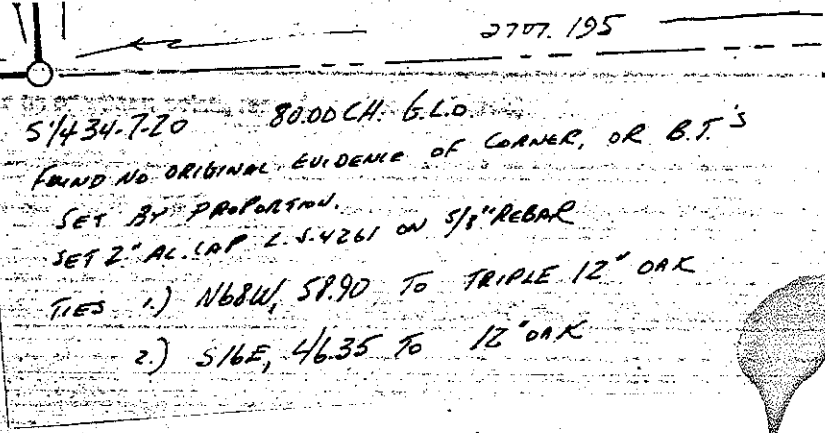 2707.195
S 1/4 34-7-20 80.00 CH. G.L.O.
FOUND NO ORIGINAL EVIDENCE OF CORNER, OR B.T.'S
SET BY PROPORTION.
SET 2" AL. CAP L.S. 4261 ON 5/8" REBAR
TIES 1.) N68W, 58.90 TO TRIPLE 12" OAK
2.) S16E, 46.35 TO 12" OAK